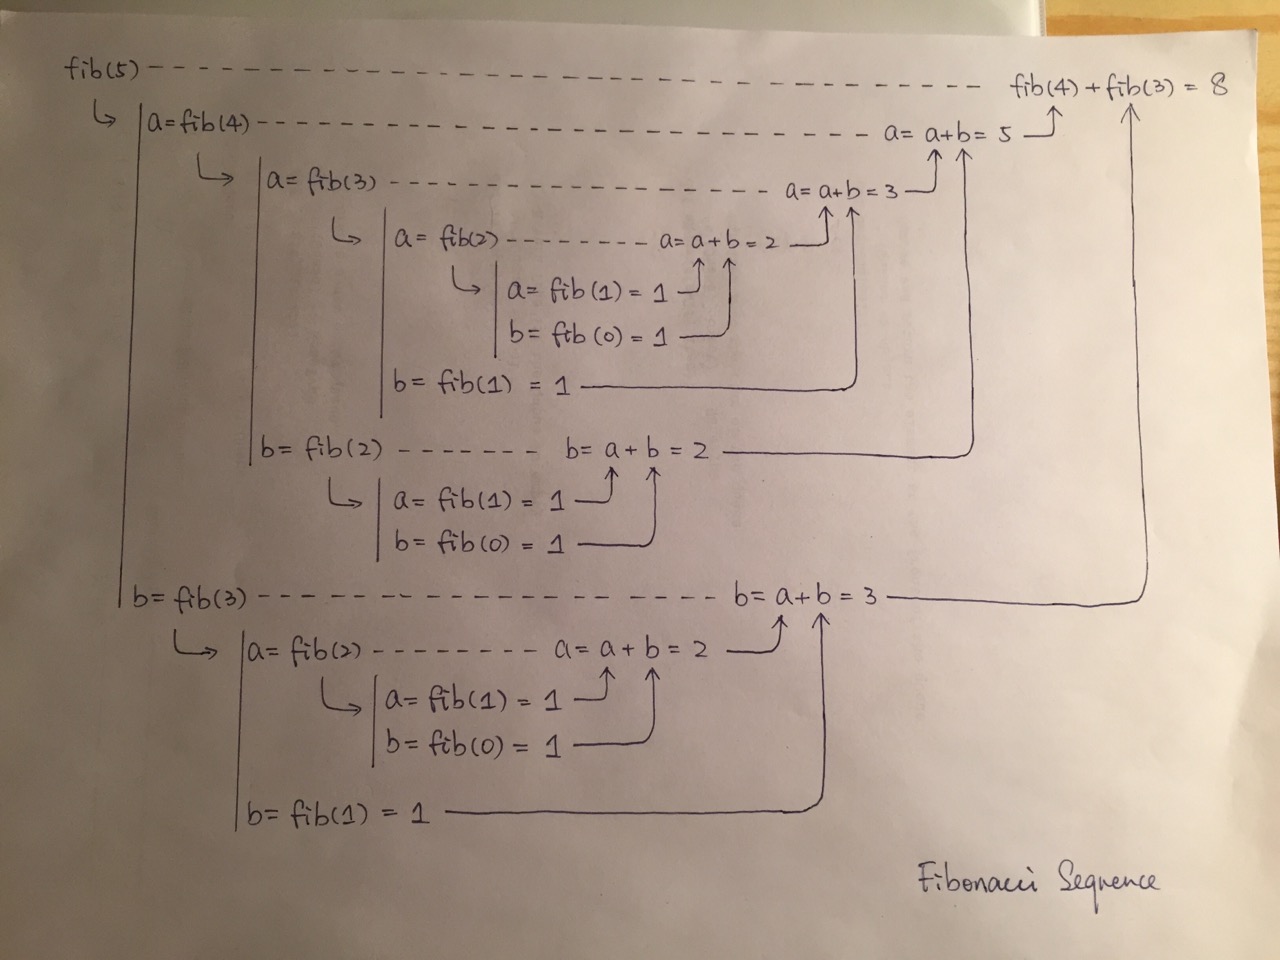 fib(5) fib(4) + fib(3) = 8
a = fib(4) a = a+b = 5
a = fib(3) a = a+b = 3
a = fib(2) a = a+b = 2
a = fib(1) = 1
b = fib(0) = 1
b = fib(1) = 1
b = fib(2) b = a + b = 2
a = fib(1) = 1
b = fib(0) = 1
b = fib(3) b = a+b = 3
a = fib(2) a = a + b = 2
a = fib(1) = 1
b = fib(0) = 1
b = fib(1) = 1
Fibonacci Sequence